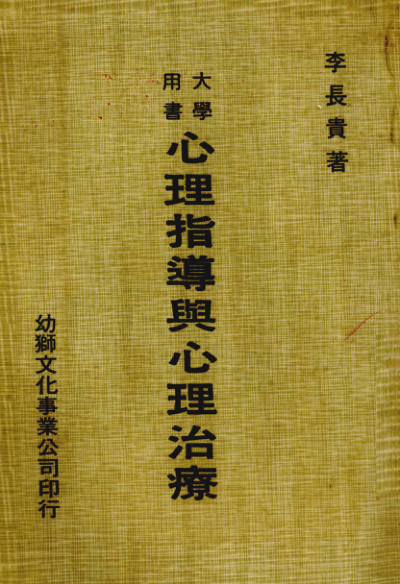 李長貴著
大學用書
心理指導與心理治療
幼獅文化事業公司印行